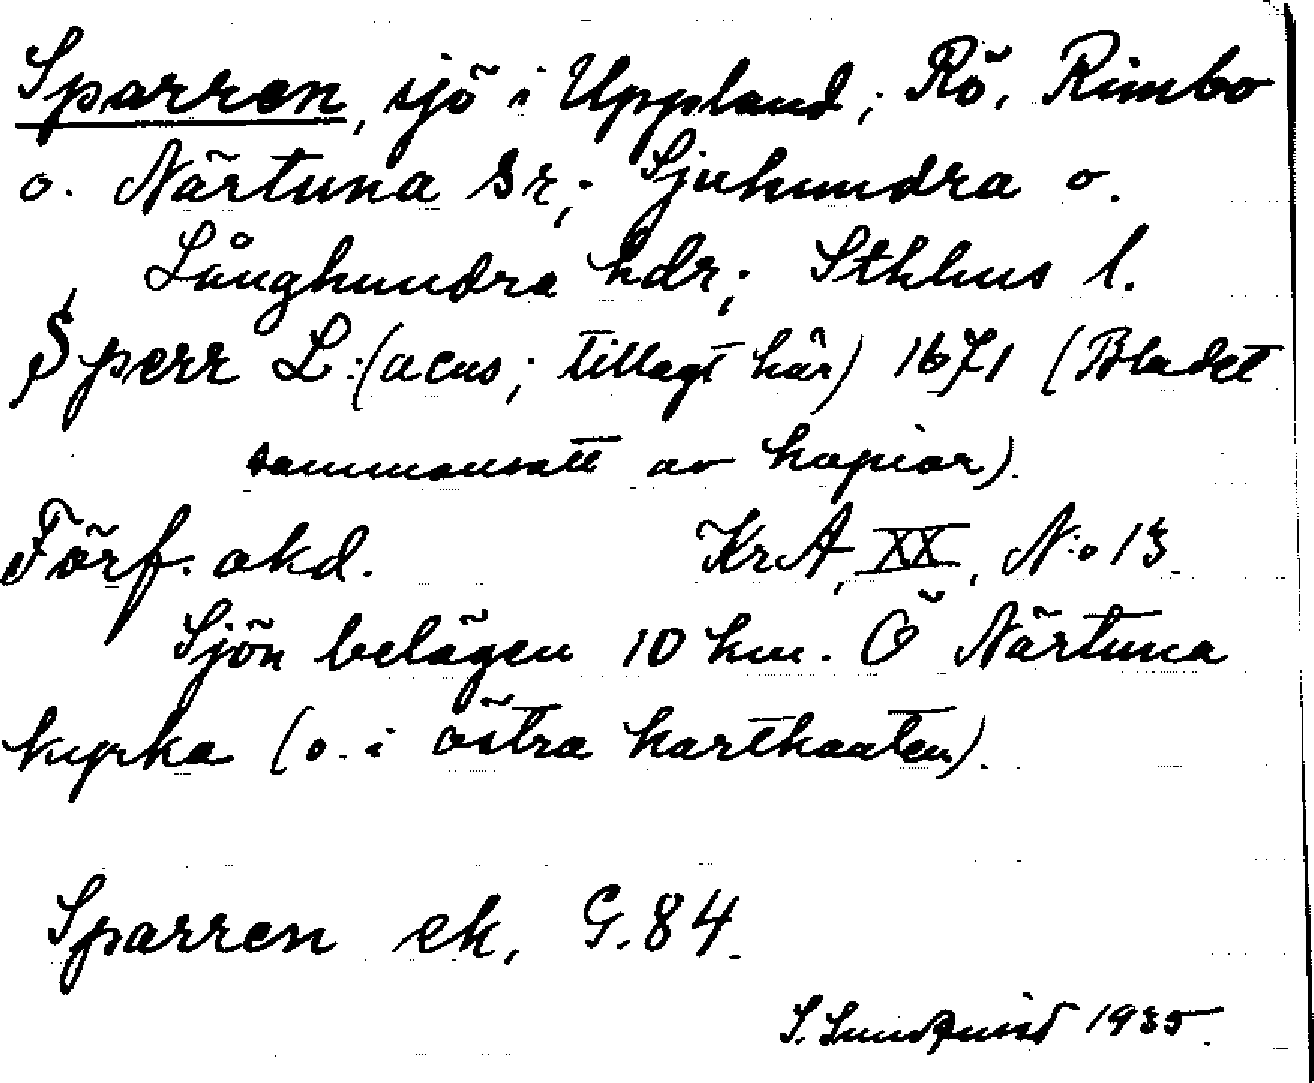 Sparren, sjö i Uppland; Rö, Rimbo
o. Närtuna sr; Sjuhundra o.
Långhundra hdr; Sthlms l.
Sperr L:(acus; tillagt här) 1671 (Bladet
sammansatt av kopior).
Förf. okd. KrA, XX, N:o 13
Sjön belägen 10 km. Ö Närtuna
kyrka (o. i östra kartkanten).
Sparren ek, G.84.
S. Lundquist 1935.